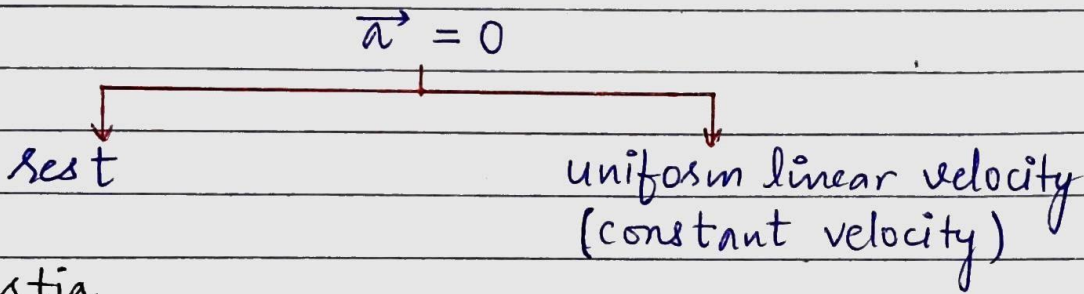 a⃗ = 0
rest
uniform linear velocity
(constant velocity)